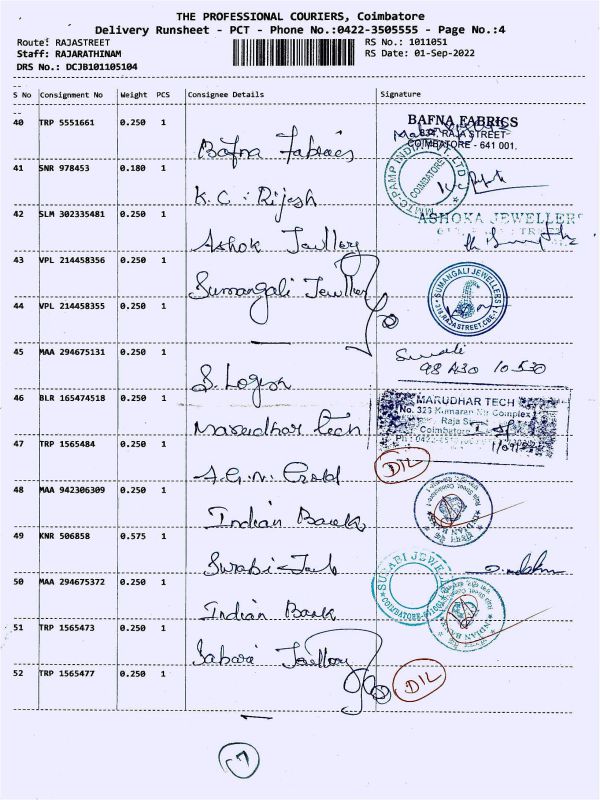 THE PROFESSIONAL COURIERS, Coimbatore
Delivery Runsheet - PCT - Phone No.:0422-3505555 - Page No.:4
Route: RAJASTREET RS No.: 1011051
Staff: RAJARATHINAM RS Date: 01-Sep-2022
DRS No.: DCJB101105104
S No Consignment No Weight PCS Consignee Details Signature
40 TRP 5551661 0.250 1 Bafna Fabrics BAFNA FABRICS
RAJA STREET
COIMBATORE - 641 001.
41 SNR 978453 0.180 1 K.C. Rijesh MMTC-PAMP INDIA PVT. LTD COIMBATORE
42 SLM 302335481 0.250 1 Ashok Jewllery ASHOKA JEWELLERS
43 VPL 214458356 0.250 1 Sumangali Jewllery SUMANGALI JEWELLERS
RAJA STREET, CBE-1
44 VPL 214458355 0.250 1
45 MAA 294675131 0.250 1 S. Logesh
98 430 10530
46 BLR 165474518 0.250 1 Marudhar Tech MARUDHAR TECH
No. 323 Kumaran Complex
Raja St
Coimbatore
47 TRP 1565484 0.250 1 A.G.N. Gold D/L
48 MAA 942306309 0.250 1 Indian Bank INDIAN BANK
49 KNR 506858 0.575 1 Surabi SURABI JEWELL
COIMBATORE
50 MAA 294675372 0.250 1 Indian Bank INDIAN BANK
51 TRP 1565473 0.250 1 Sabari Jewllery
52 TRP 1565477 0.250 1 D/L
7